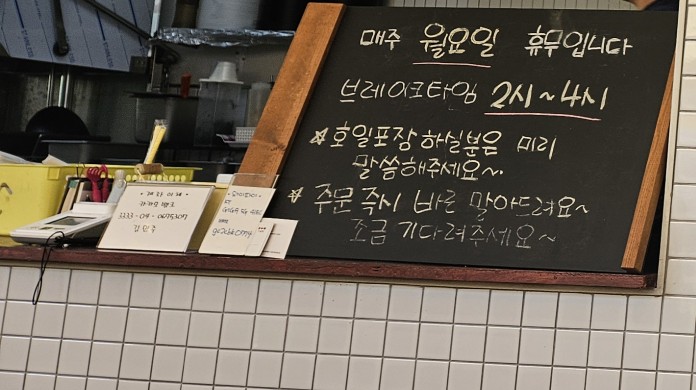 매주 월요일 휴무입니다
브레이크타임 2시~4시
☆호일포장 하실분은 미리
말씀해주세요~
☆ 주문 즉시 바로 말아드려요~
조금 기다려주세요~
카카오뱅크